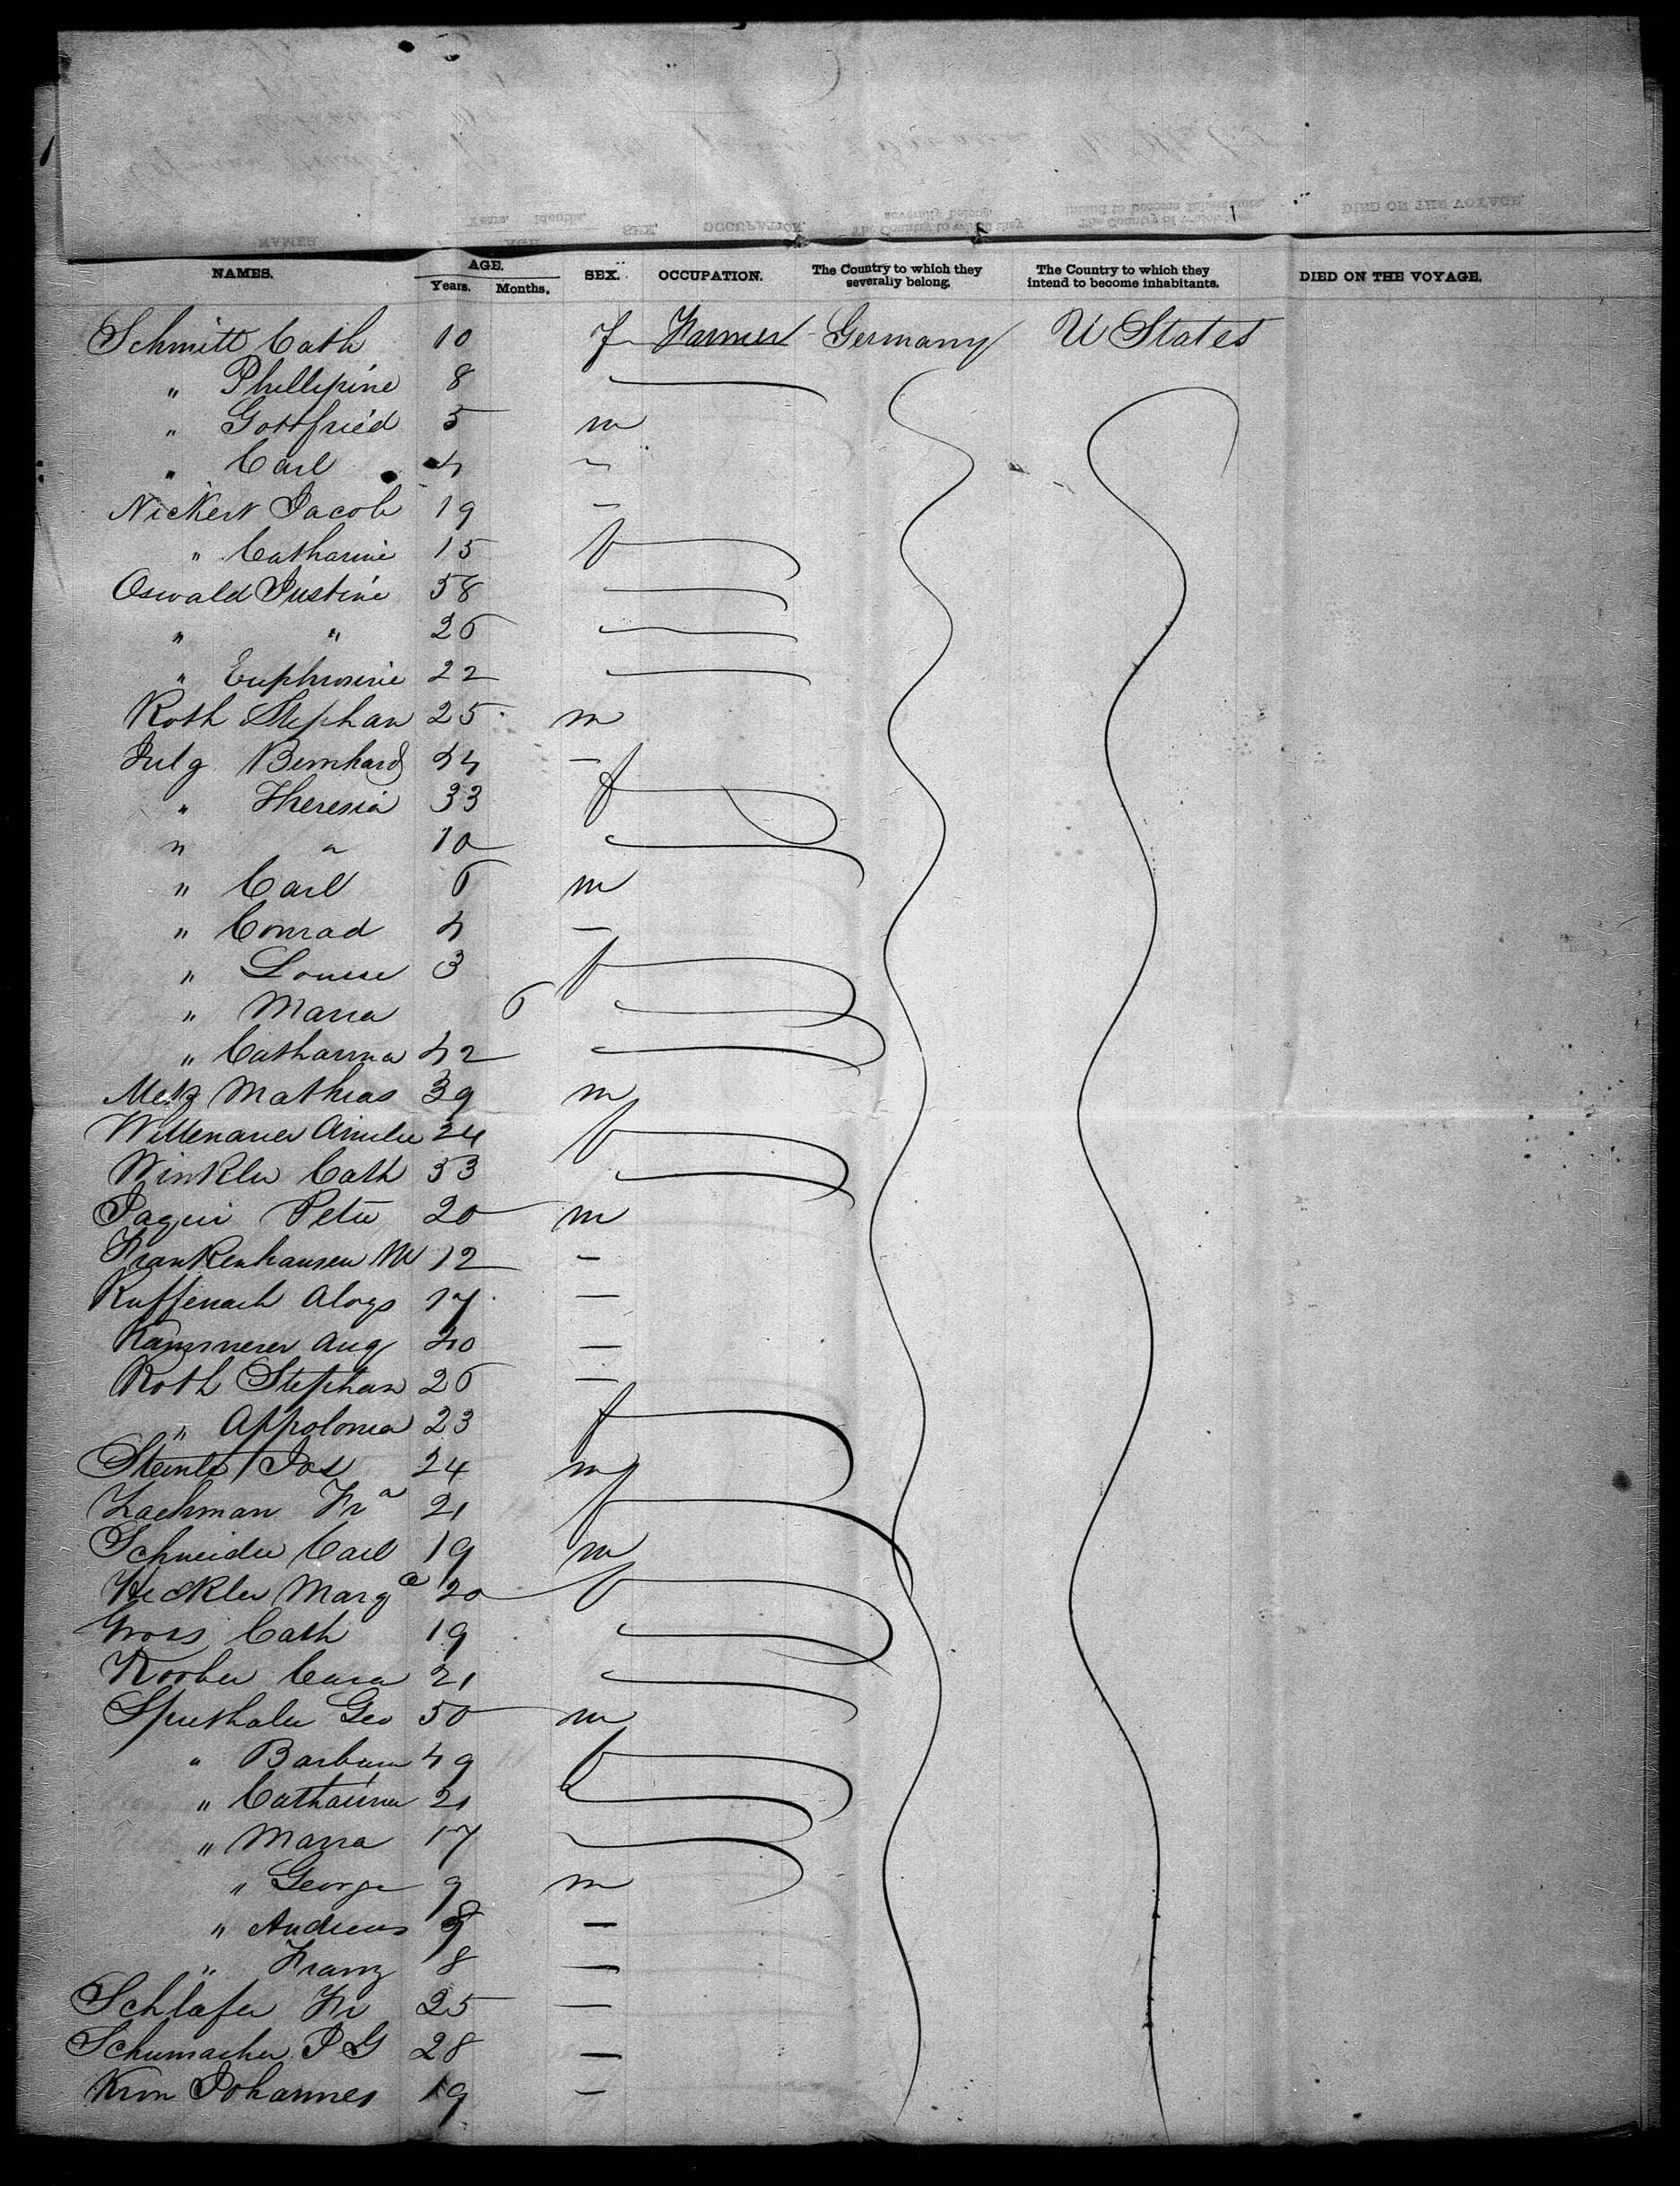 NAMES. AGE. Years. Months. SEX. OCCUPATION. The Country to which they severally belong. The Country to which they intend to become inhabitants. DIED ON THE VOYAGE.
Schmitt Cath 10 f Farmer Germany U States
" Phillipine 8
" Gottfried 5 m
" Carl 4 ~
Nickert Jacob 19 –
" Catharine 15 f
Oswald Justine 58
" " 26
" Euphrosine 22
Roth Stephan 25 m
Julg Bernhard 44 –
" Theresia 33 f
" " 10
" Carl 6 m
" Conrad 4 –
" Louise 3 f
" Maria 6
" Catharina 42
Metz Mathias 39 m
Wittenauer Amelie 24 f
Winkler Cath 53
Jaqui Peter 20 m
Frankenhauser M 12 –
Ruffenach Aloys 17 –
Kammerer Aug 40 –
Roth Stephan 26 –
" Appolonia 23 f
Steinle Jos 24 m
Lachman Fr a 21 f
Schneider Carl 19 m
Heckler Marg a 20 f
Gross Cath 19
Koober Cara 21
Geo 50 m
" Barbara 49 f
" Catharina 21
" Maria 17
" George 9 m
" Andreas 9 –
" Franz 8 –
Schlafer Fr 25 –
Schumacher J G 28 –
Johannes 19 –